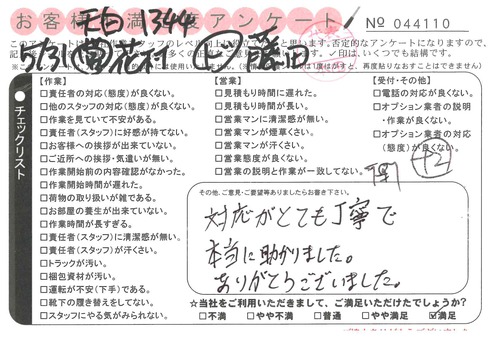 お客様満足度アンケート
天白 1344
No 044110
チェックリスト
【作業】
□責任者の対応(態度)が良くない。
□他のスタッフの対応(態度)が良くない。
□作業を見ていて不安がある。
□責任者(スタッフ)に好感が持てない。
□お客様への挨拶が出来ていない。
□ご近所への挨拶・気遣いが無い。
□作業開始前の内容確認がなかった。
□作業開始時間が遅れた。
□荷物の取り扱いが雑である。
□お部屋の養生が出来ていない。
□作業時間が長すぎる。
□責任者(スタッフ)に清潔感が無い。
□責任者(スタッフ)が汗くさい。
□トラックが汚い。
□梱包資材が汚い。
□運転が不安(下手)である。
□靴下の履き替えをしてない。
□スタッフにやる気がみられない。
【営業】
□見積もり時間に遅れた。
□見積もり時間が長い。
□営業マンに清潔感が無い。
□営業マンが煙草くさい。
□営業マンが汗くさい。
□営業態度が良くない。
□営業の説明と作業が一致してない。
【受付・その他】
□電話の対応が良くない。
□オプション業者の説明
・作業が良くない。
□オプション業者の対応
(態度)が良くない。
+2
その他、ご意見・ご要望等ありましたらお書き下さい。
対応がとても丁寧で
本当に助かりました。
ありがとうございました。
☆当社をご利用いただきまして、ご満足いただけたでしょうか?
□不満 □やや不満 □普通 □やや満足 ☑満足